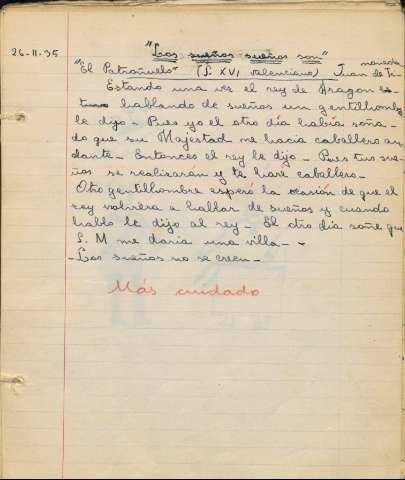 26-11-35
"Los sueños sueños son"
"El Patrañuelo" (S. XVI valenciano) Juan de Ti-
moneda
Estando una vez el rey de Aragon es-
tuvo hablando de sueños un gentilhombre
le dijo - Pues yo el otro día había soña-
do que su Majestad me hacia caballero an-
dante - Entonces el rey le dijo - Pues tus sue-
ños se realizarán y te haré caballero -
Otro gentilhombre esperó la ocasión de que el
rey volviera a hablar de sueños y cuando
hablo le dijo al rey - El otro dia soñe que
S. M me daria una villa - -
- Los sueños no se creen -
Más cuidado